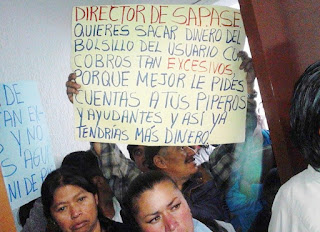 DIRECTOR DE SAPASE
QUIERES SACAR DINERO DEL
BOLSILLO DEL USUARIO CU
COBROS TAN EXCESIVOS,
PORQUE MEJOR LE PIDES
CUENTAS A TUS PIPEROS
Y AYUDANTES Y ASI YA
TENDRIAS MAS DINERO!
DE
TAN EX
Y NO
AGU
NI DE